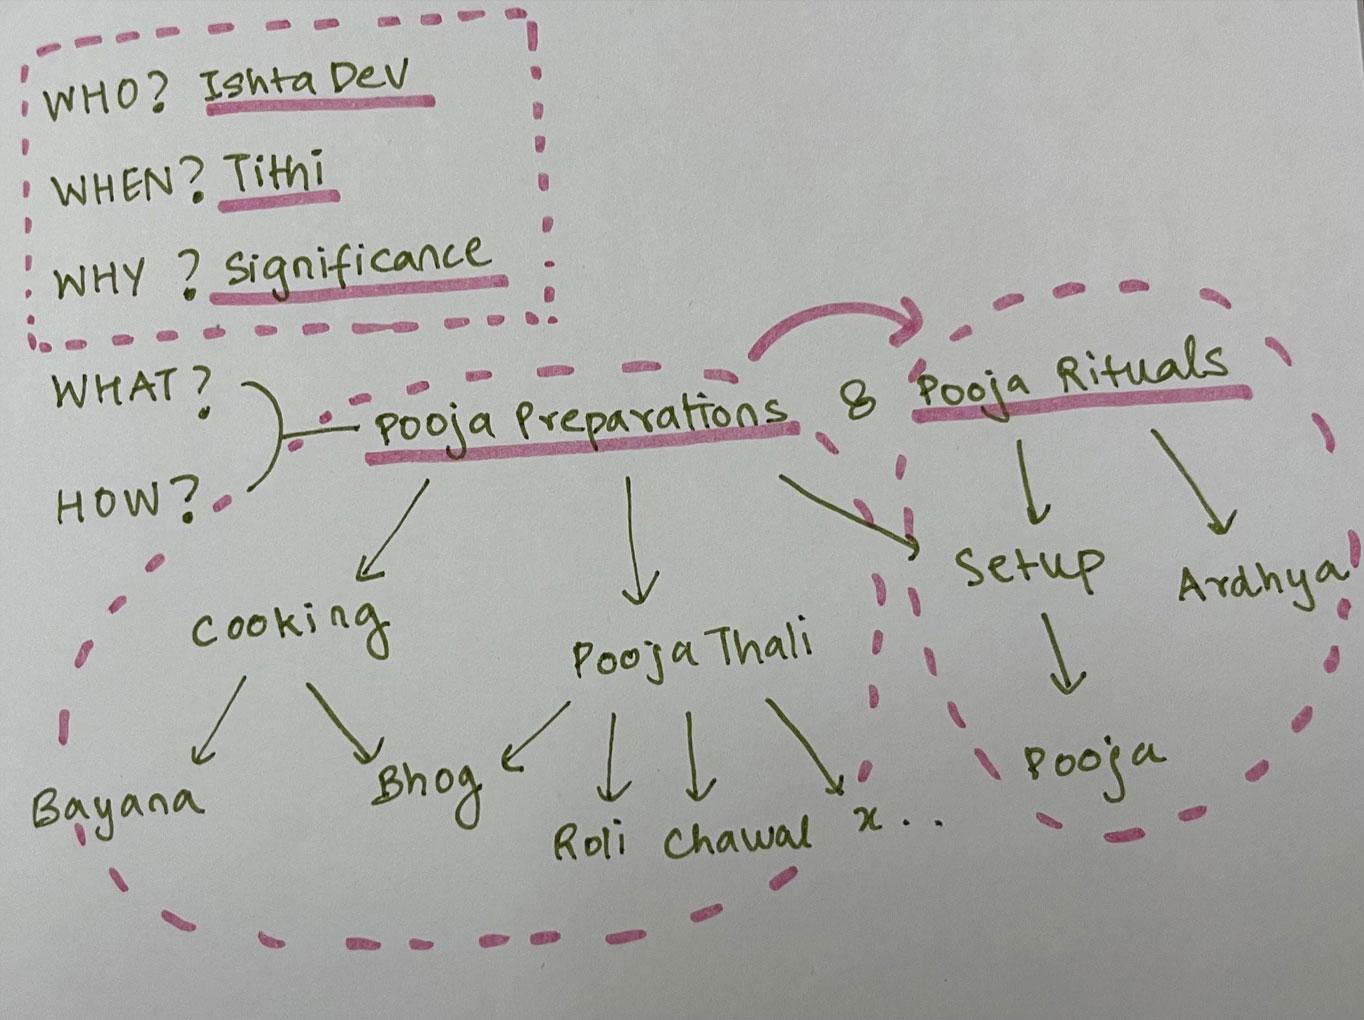 WHO? Ishta Dev
WHEN? Tithi
WHY? Significance
WHAT?
HOW?
Pooja Preparations & Pooja Rituals
Cooking
Pooja Thali
Setup
Ardhya
Bayana
Bhog
Roli
Chawal
x..
Pooja